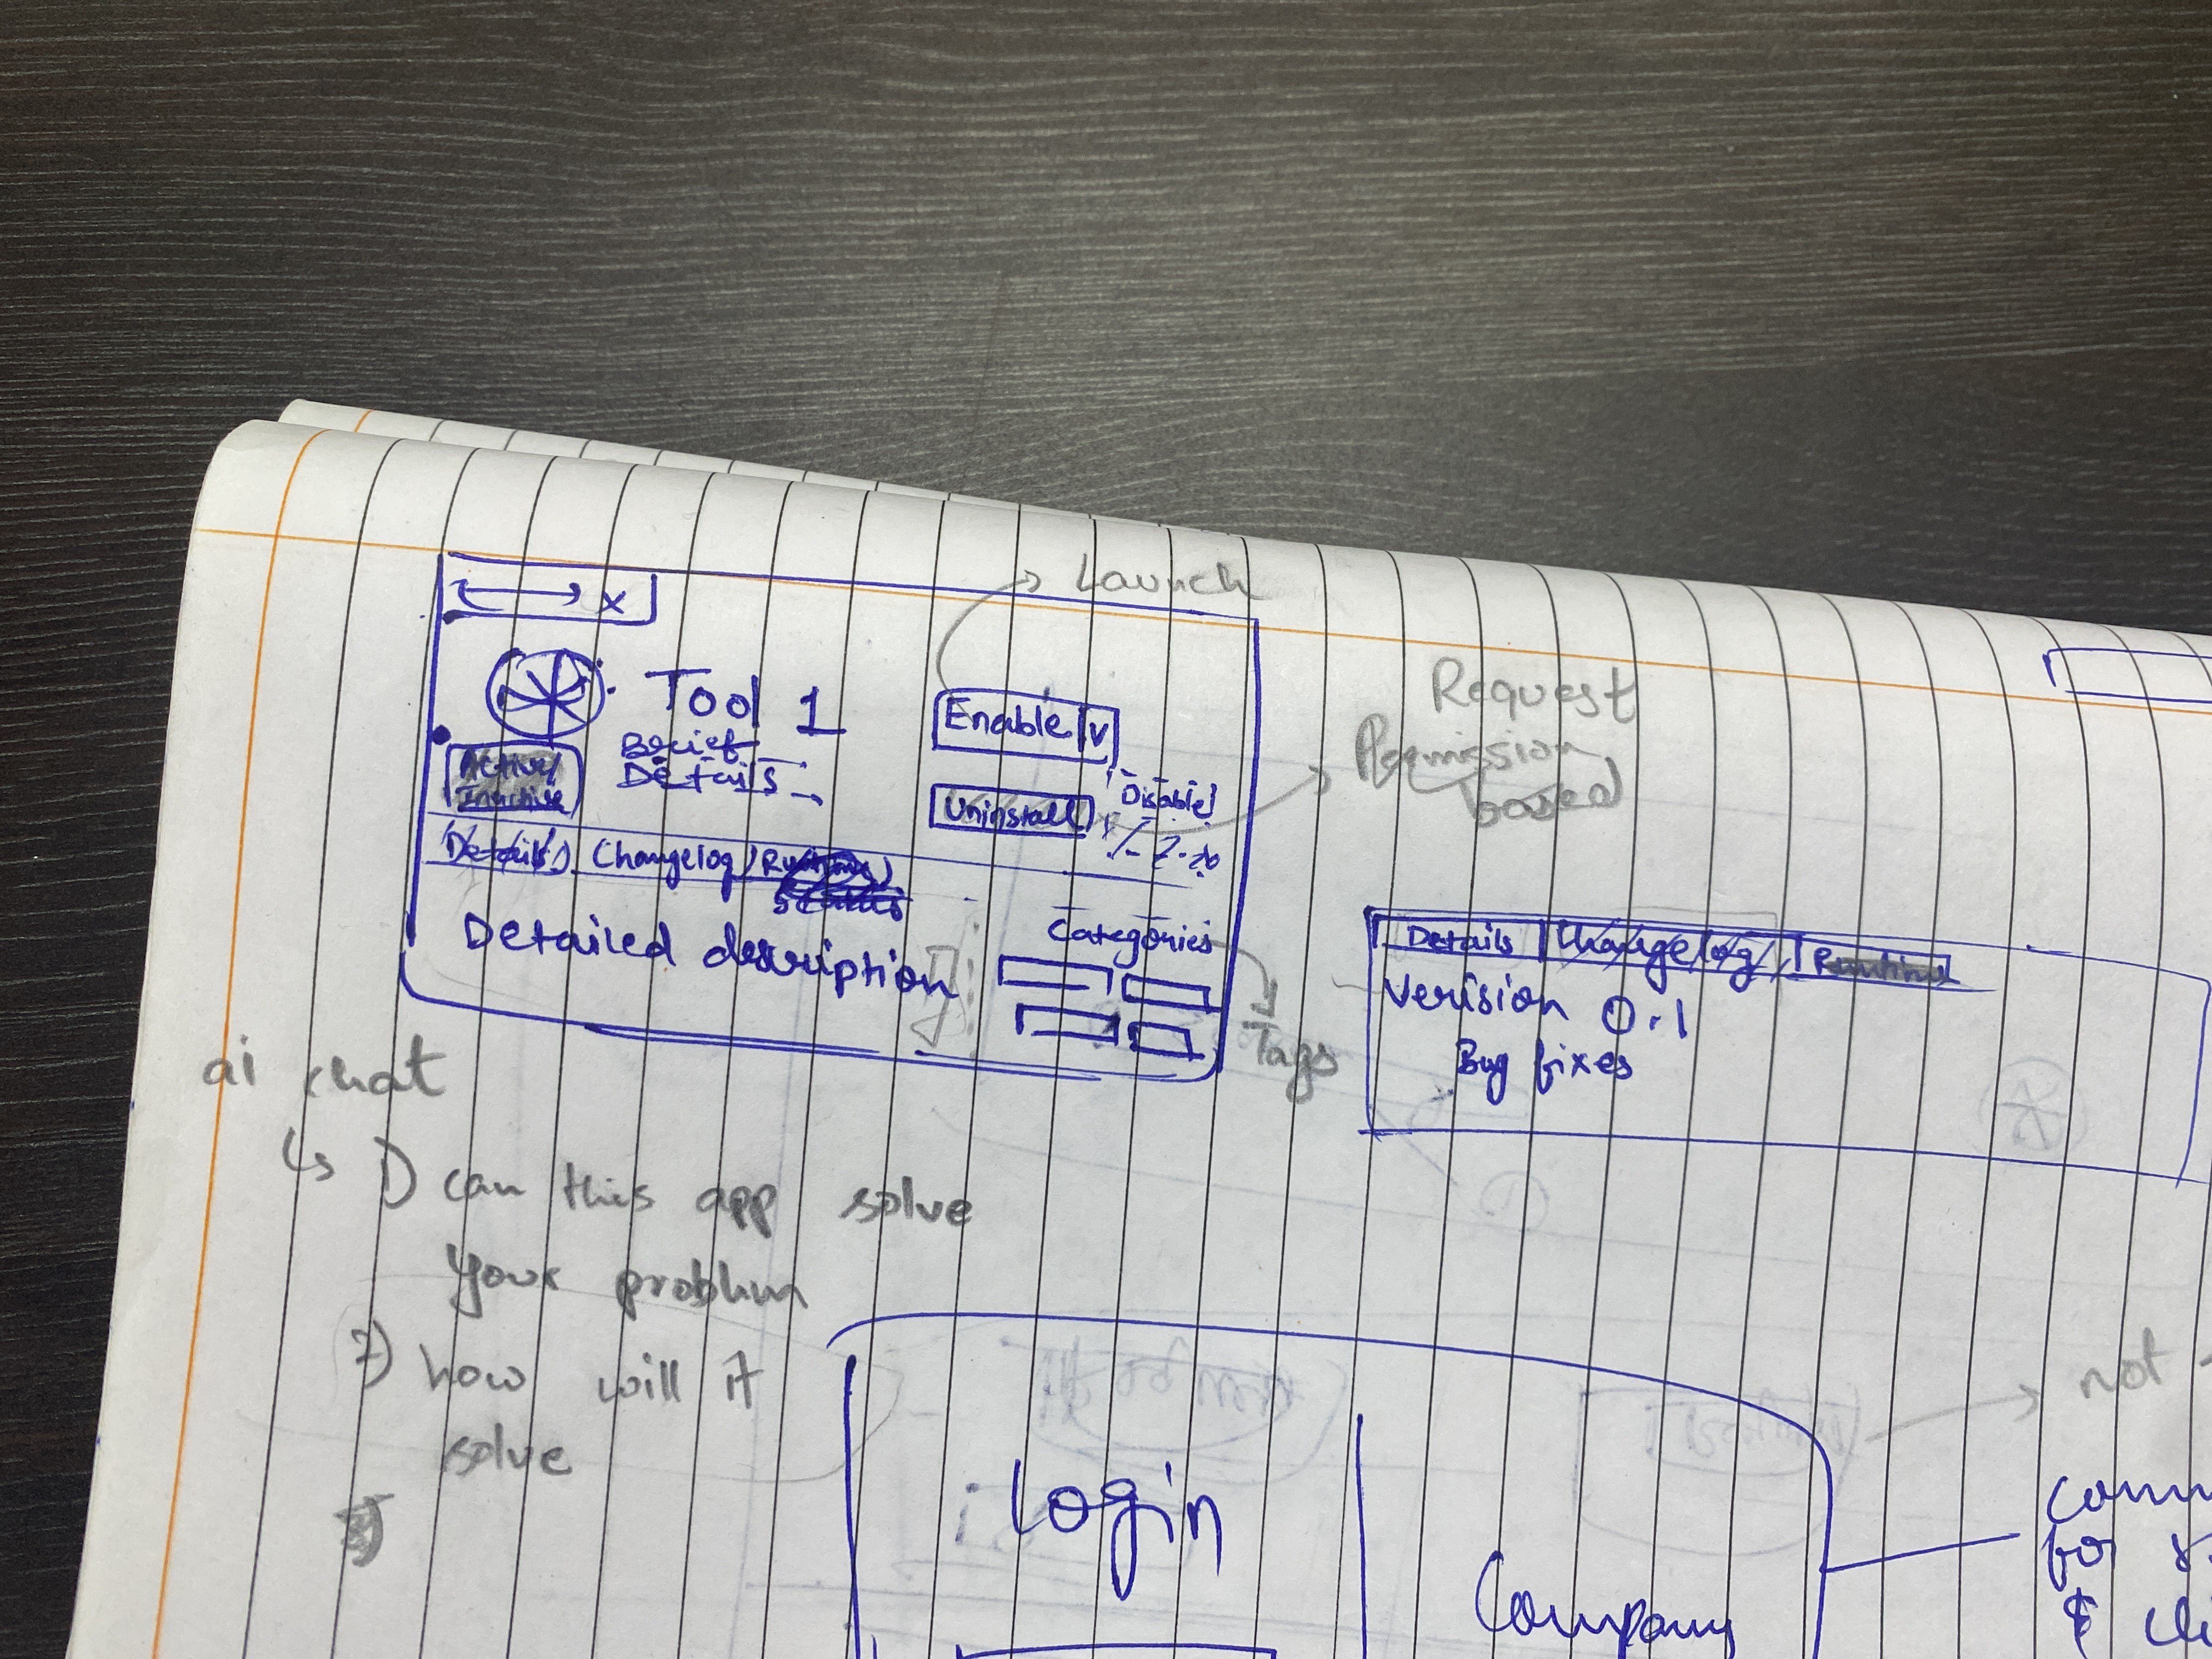 Launch
x
Tool 1
Brief
Details
Active/
Inactive
Enable v
Uninstall
Disable
Request
Permission
based
Details Changelog
Status
Detailed description
Categories
Tags
Details Changelog Runtime
Verision 0.1
Bug fixes
ai chat
1) can this app solve
your problem
2) how will it
solve
3)
login
Company
not